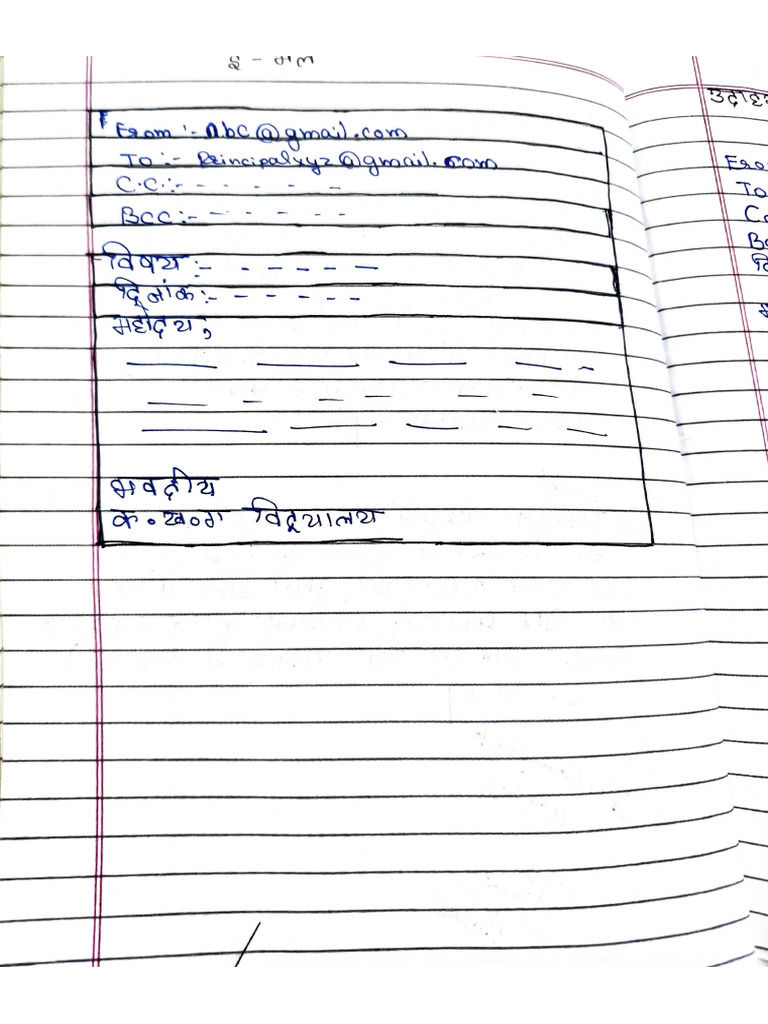 ई - मेल
From :- Abc@gmail.com
To :- Principalxyz@gmail.com
C.C. :- - - - - -
BCC :- - - - - -
विषय :- - - - - - -
दिनांक :- - - - - - -
महोदय,
भवदीय
क॰ख॰ग विद्यालय
उदाह
Fro
To
Cc
Bc